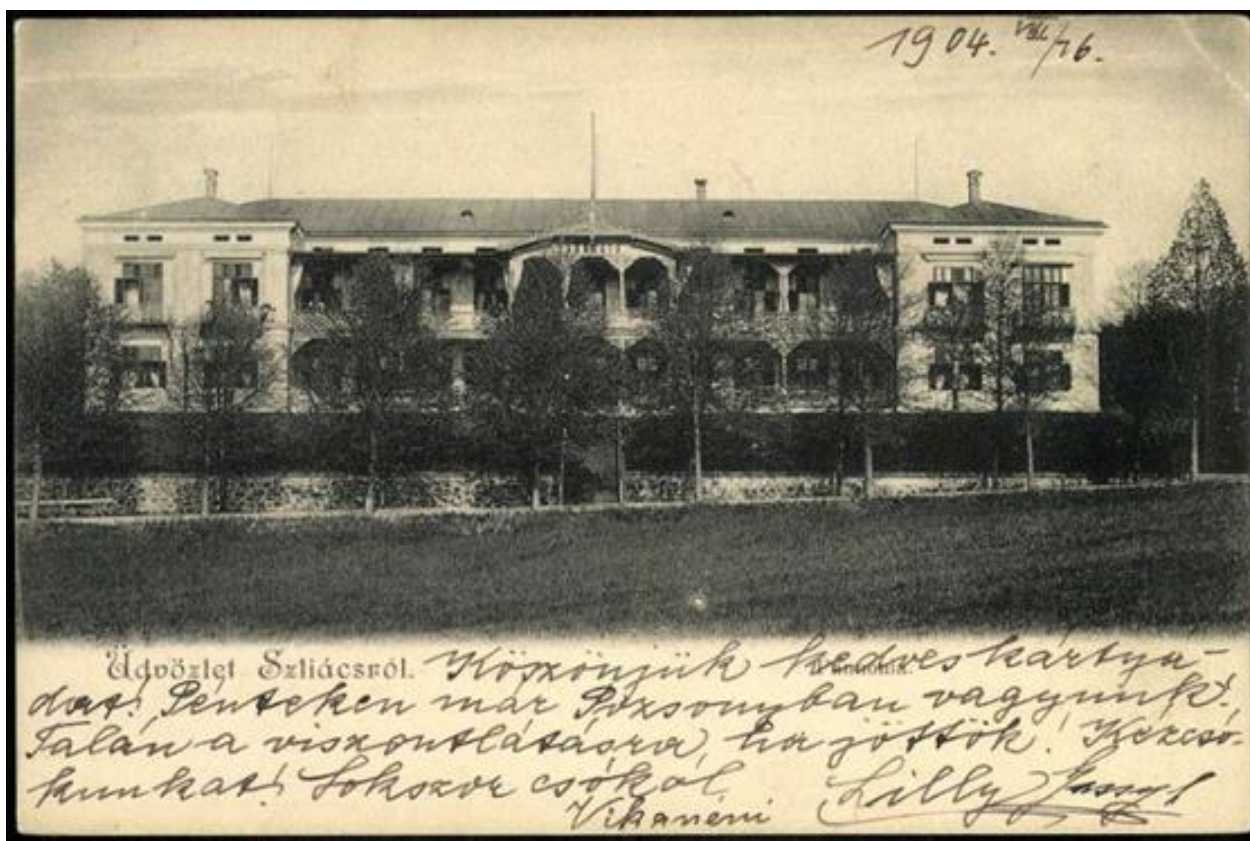 1904. VIII/16.
Üdvözlet Szliácsról. Köszönjük kedves kártya-
dat! Pénteken már Pozsonyban vagyunk!
Talán a viszontlátásra, ha jöttök! Kézcsó-
kunkat! Sokszor csókol
Vikanéni Lilly